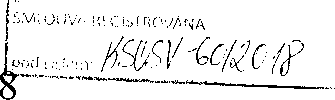 SMLOUVA REGISTROVÁNA
pod číslem: KSÚSV 60/2018
8